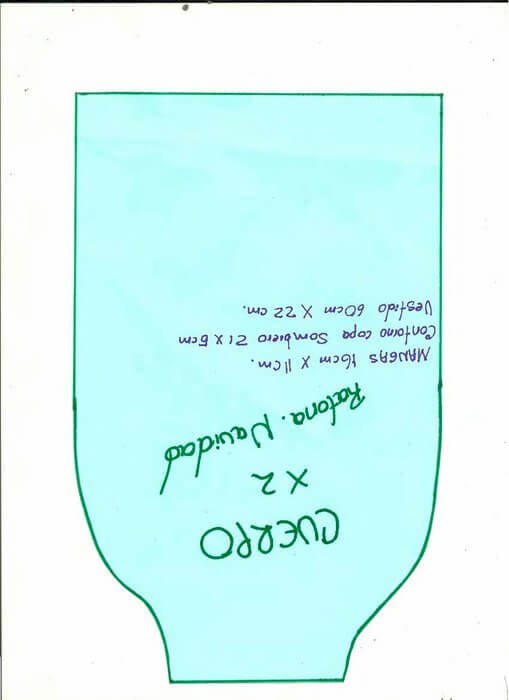 CUERPO
X 2
Ratona. Navidad
MANGAS 16cm X 11cm.
Contorno copa Sombrero 21 x 5cm
Vestido 60cm X 22 cm.